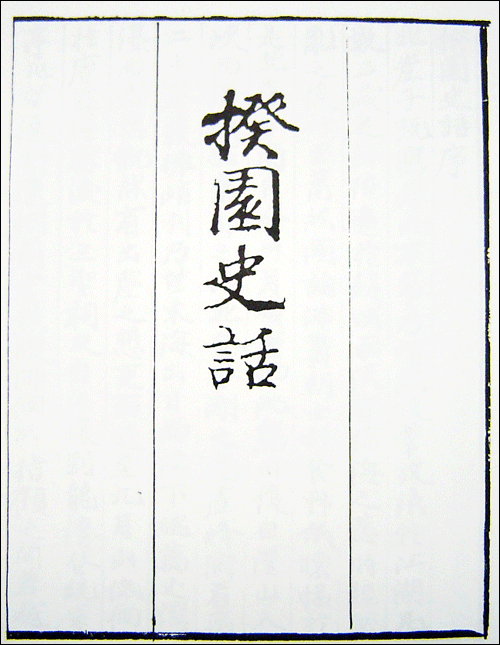 揆園史話